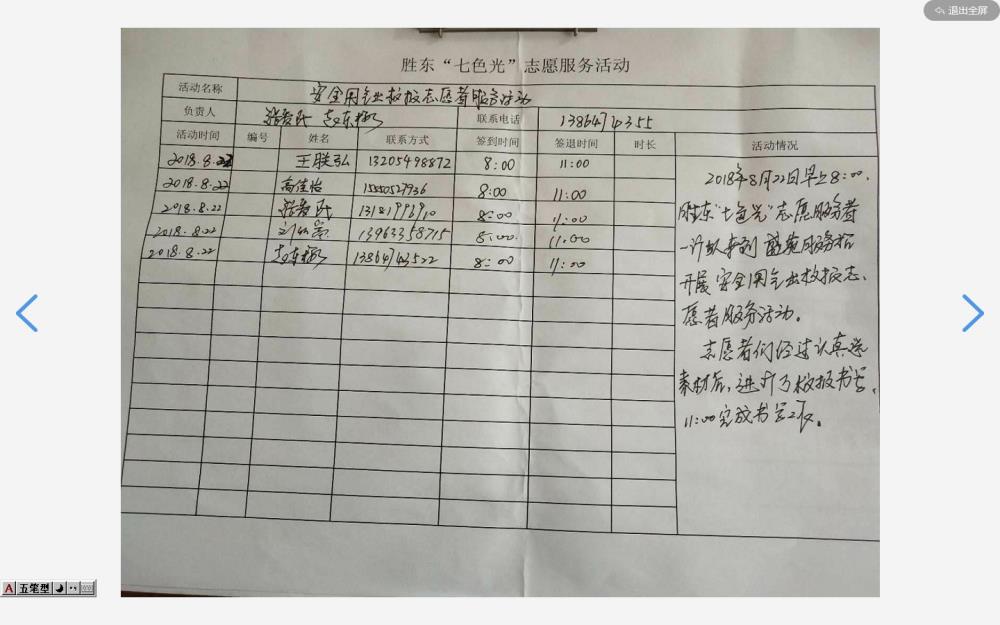 退出全屏
胜东“七色光”志愿服务活动
活动名称 安全用气出板报志愿者服务活动
负责人 联系电话
活动时间 编号 姓名 联系方式 签到时间 签退时间 时长 活动情况
2018.8.22 王联弘 13205498872 8:00 11:00
2018.8.22 高佳怡 8:00 11:00
2018.8.22 8:00 11:00
2018.8.22 13963358715 8:00 11:00
2018.8.22 8:00 11:00
2018年8月22日早上8:00,
胜东“七色光”志愿服务者
一行来到
开展安全用气出板报志
愿者服务活动。
志愿者们经过认真选
素材后,进行了板报书写,
11:00完成书写工作。
五笔型